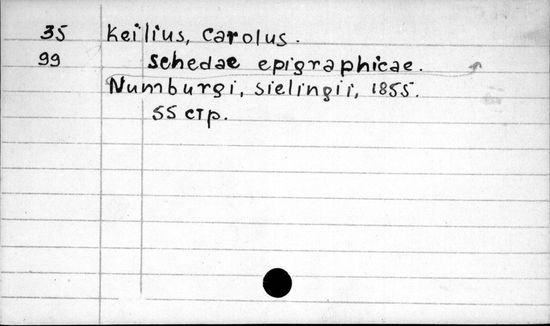 35 Keilius, Carolus.
99 Schedae epigraphicae.
Numburgi, Sielingii, 1855.
55 стр.